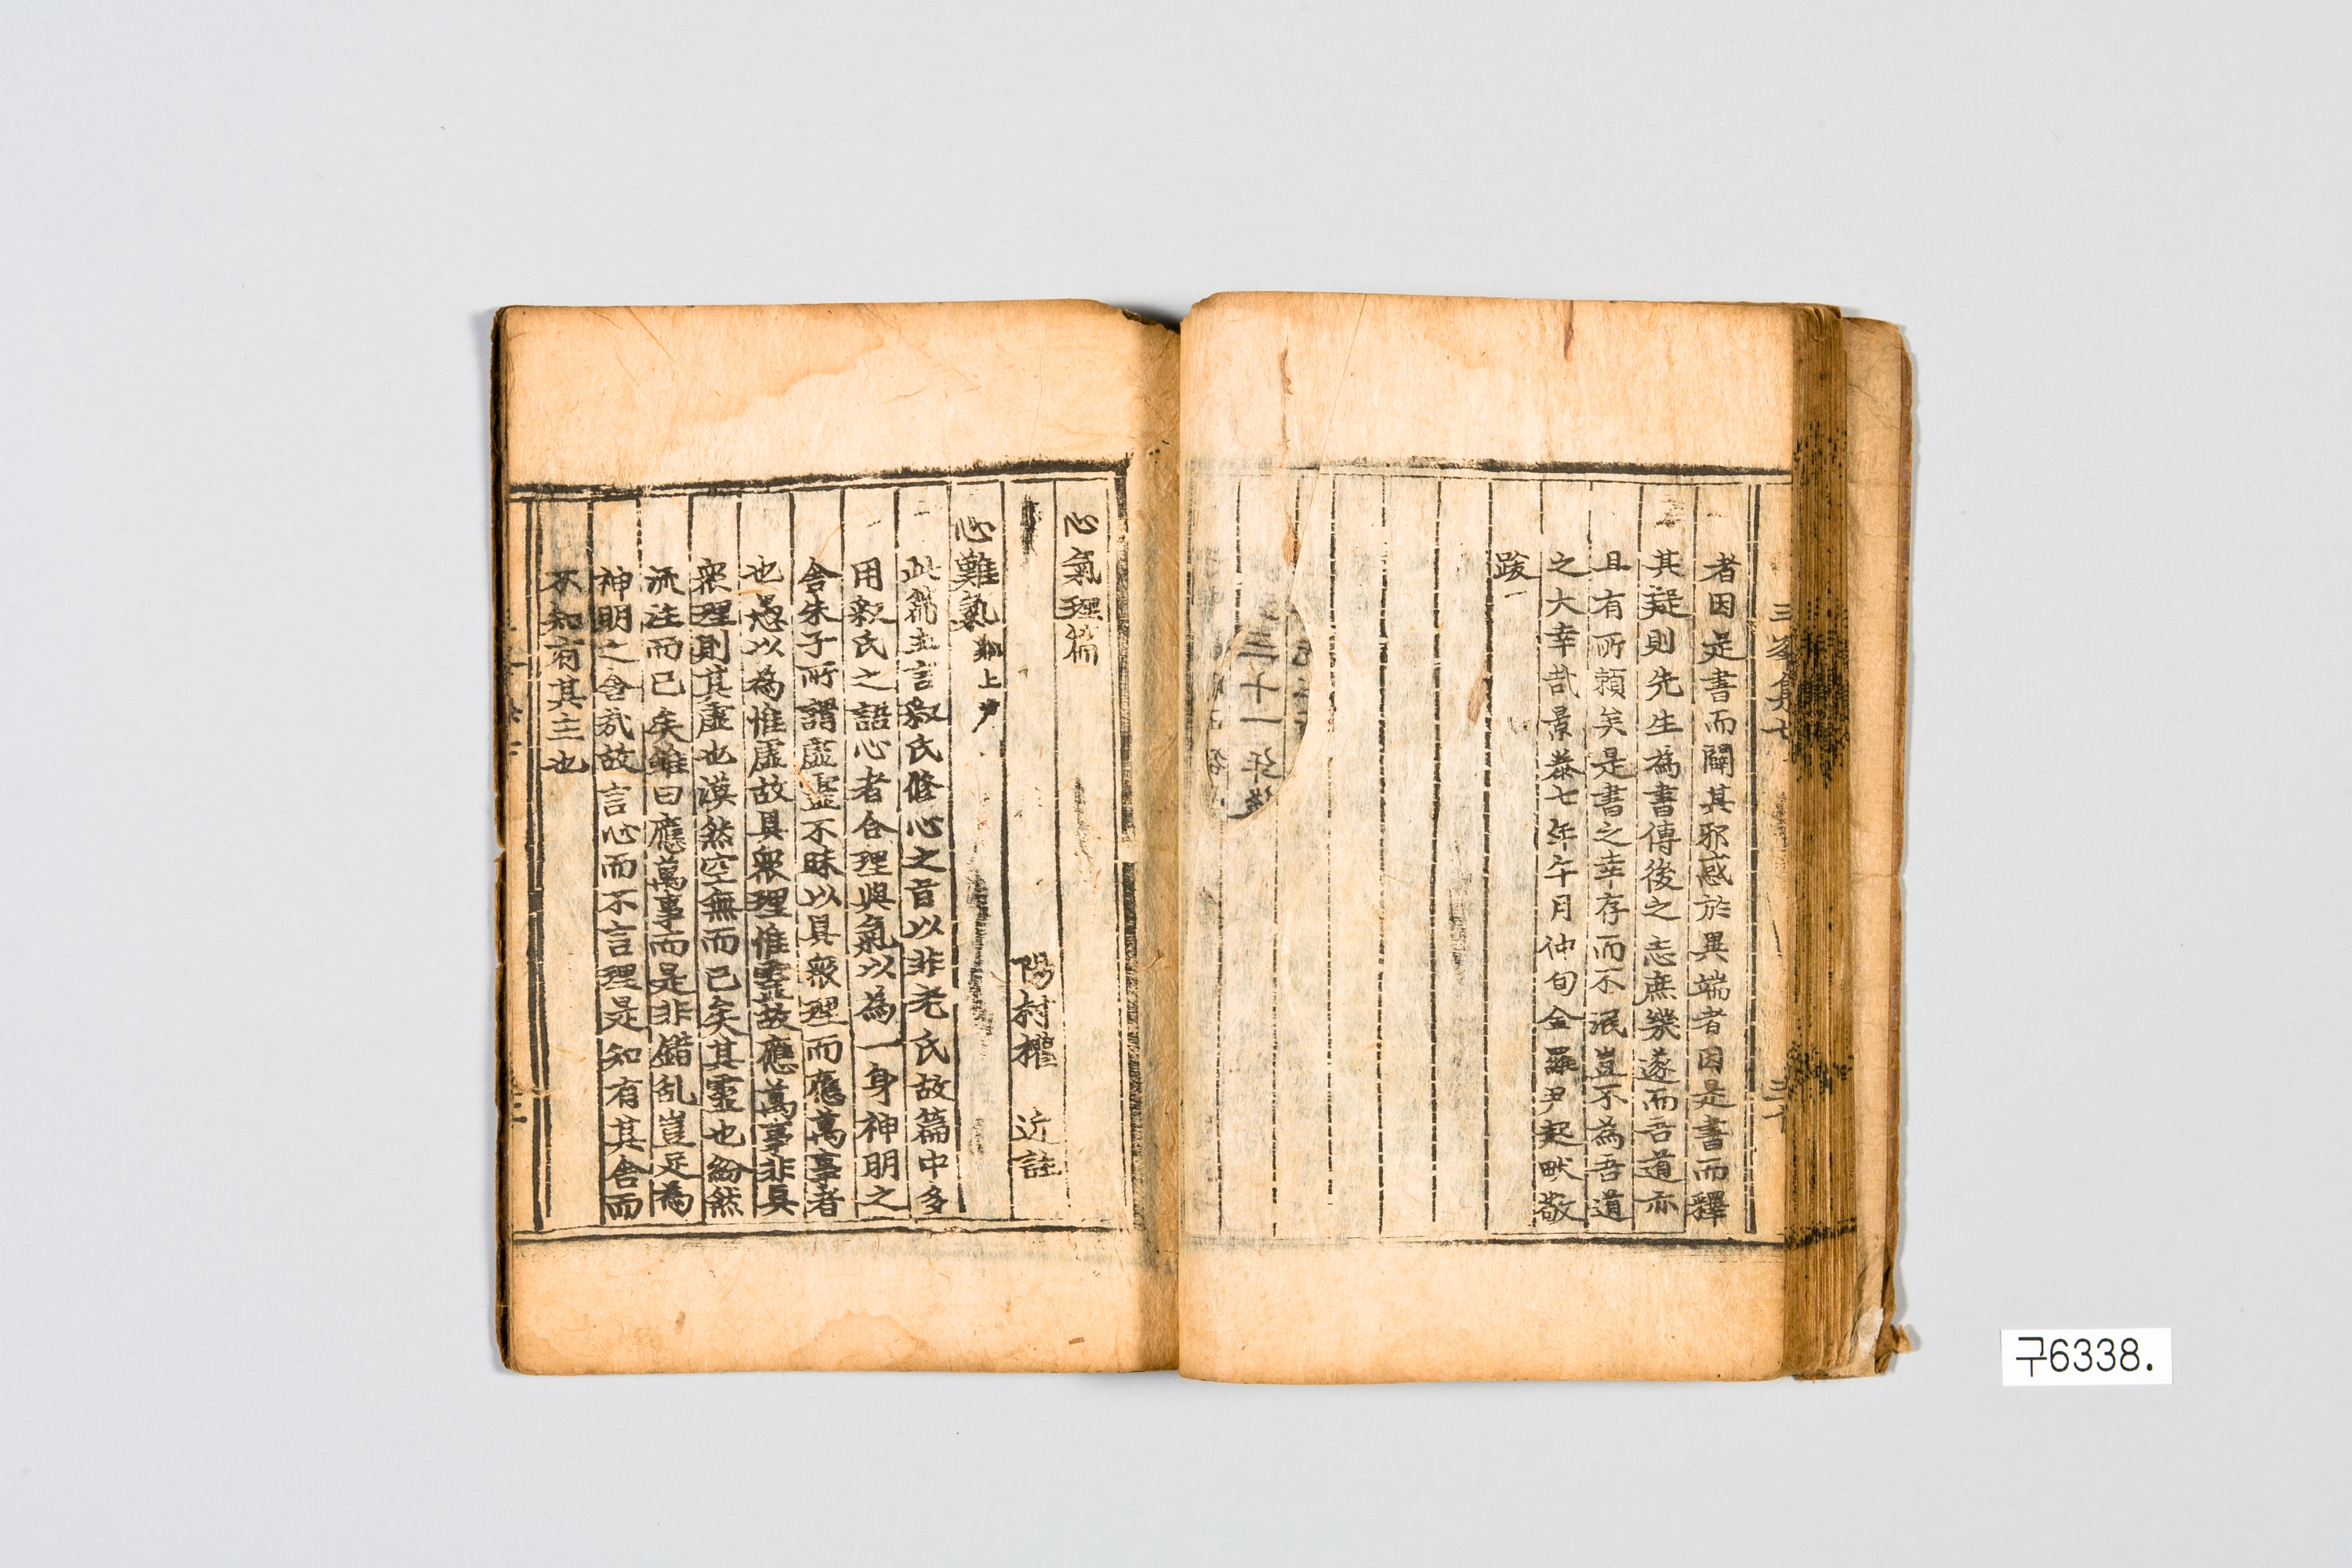 者因是書而闢其邪惑於異端者因是書而釋
其疑則先生為書傳後之志庶幾遂而吾道亦
且有所頼矣是書之幸存而不泯豈不為吾道
之大幸哉景泰七年午月仲旬金羅尹起畎敬
跋
三十一年
三峯集七
心氣理篇
陽村權 近註
心難氣
上
此篇主言釈氏修心之旨以非老氏故篇中多
用釈氏之語心者合理與氣以為一身神明之
舍朱子所謂虛靈不昧以具衆理而應萬事者
也愚以為惟虛故具衆理惟靈故應萬事非具
衆理則其虛也漠然空無而已矣其靈也紛然
流注而已矣雖曰應萬事而是非錯乱豈足為
神明之舍㢤故言心而不言理是知有其舍而
不知有其主也
구6338.